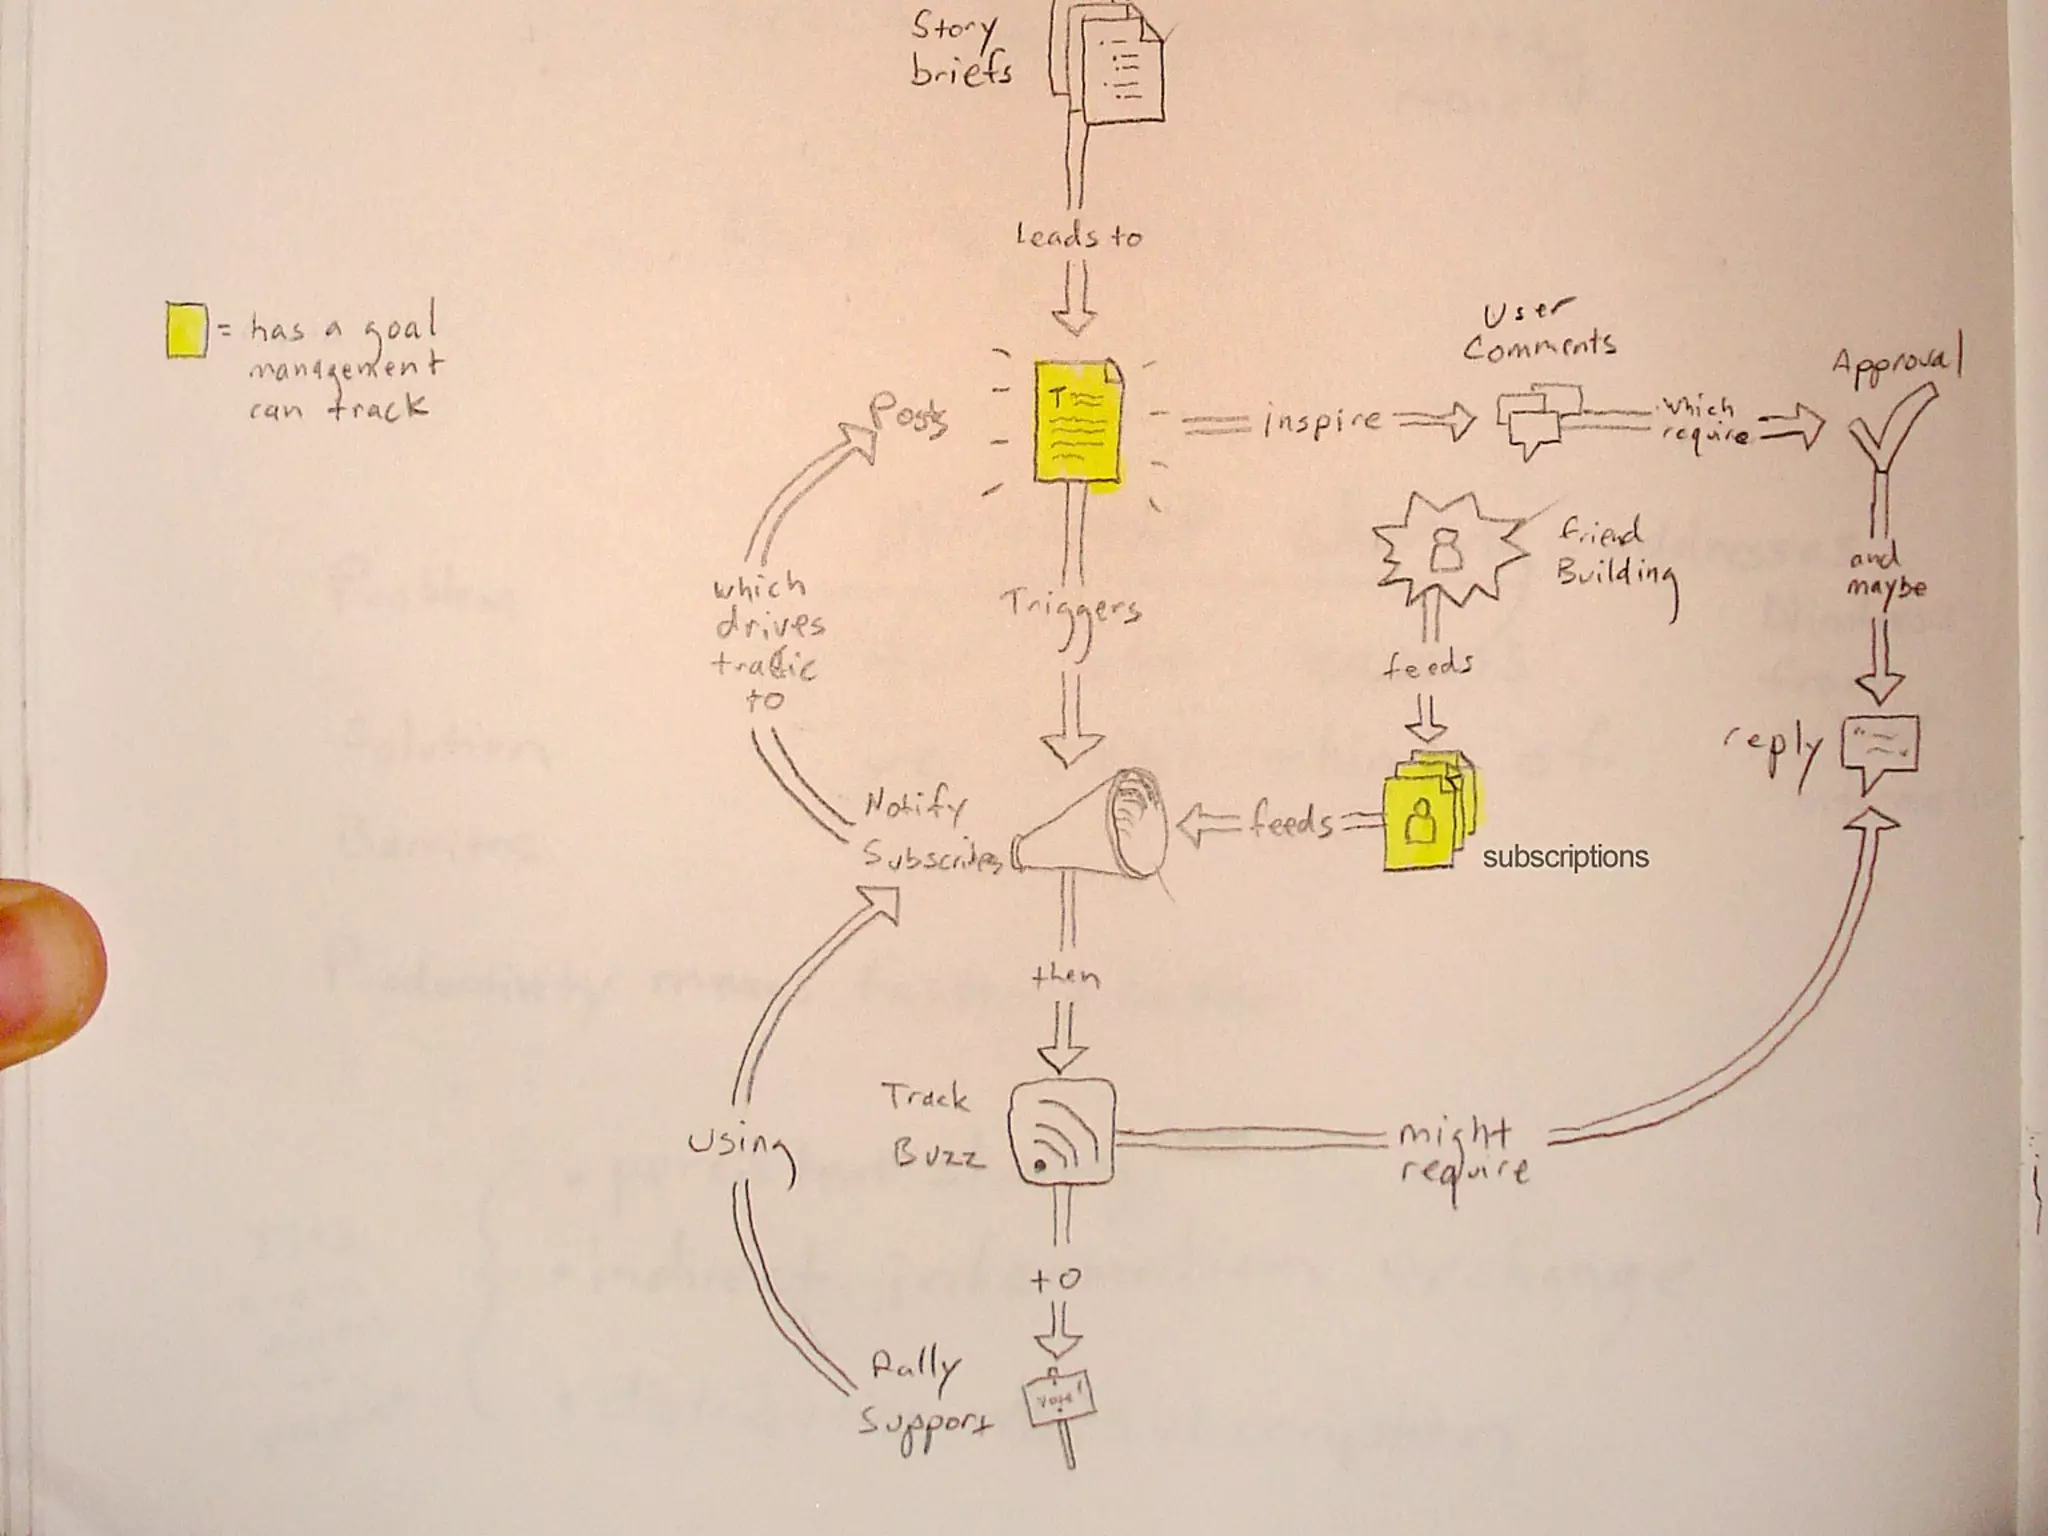 Story
briefs
Leads to
= has a goal
management
can track
Posts
T
inspire
User
Comments
which
require
Approval
and
maybe
reply
Friend
Building
feeds
subscriptions
feeds
Triggers
which
drives
traffic
to
Notify
Subscribes
then
Track
Buzz
might
require
using
to
Rally
Support
Vote!
Problem
Solution
Barriers